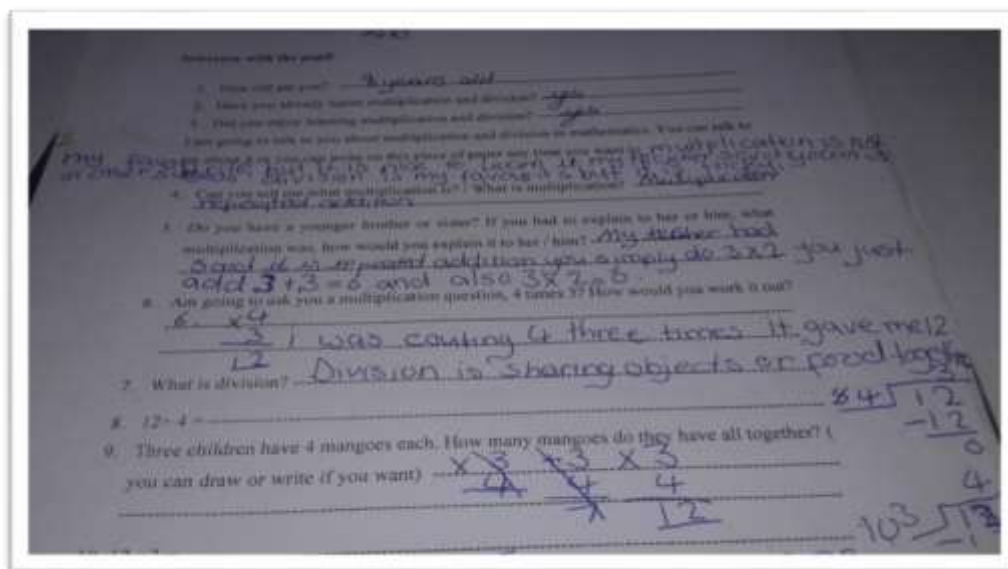 Interview with the pupil
1. How old are you? 8 years old
2. Have you already learnt multiplication and division? yes
3. Did you enjoy learning multiplication and division? yes
I am going to talk to you about multiplication and division in mathematics. You can talk to
multiplication is not
division is my favourite but
4. Can you tell me what multiplication is? / What is multiplication? Multiplication
repeated addition
5. Do you have a younger brother or sister? If you had to explain to her or him, what
multiplication was, how would you explain it to her / him? My teacher had
said it is repeated addition you simply do 3x2 you just
add 3+3=6 and also 3x2=6
6. Am going to ask you a multiplication question, 4 times 3? How would you work it out?
6. x4
3 I was couting 4 three times it gave me 12
12
7. What is division? Division is sharing objects or food together
8. 12÷4 =
4 12
-12
0
9. Three children have 4 mangoes each. How many mangoes do they have all together? (
you can draw or write if you want) x 3 +3 x 3
4 4 4
12
4
10 3